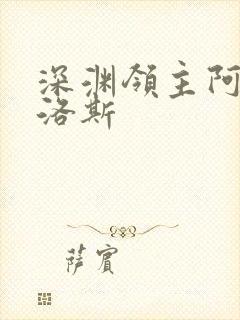 深渊领主阿
洛斯
萨宾